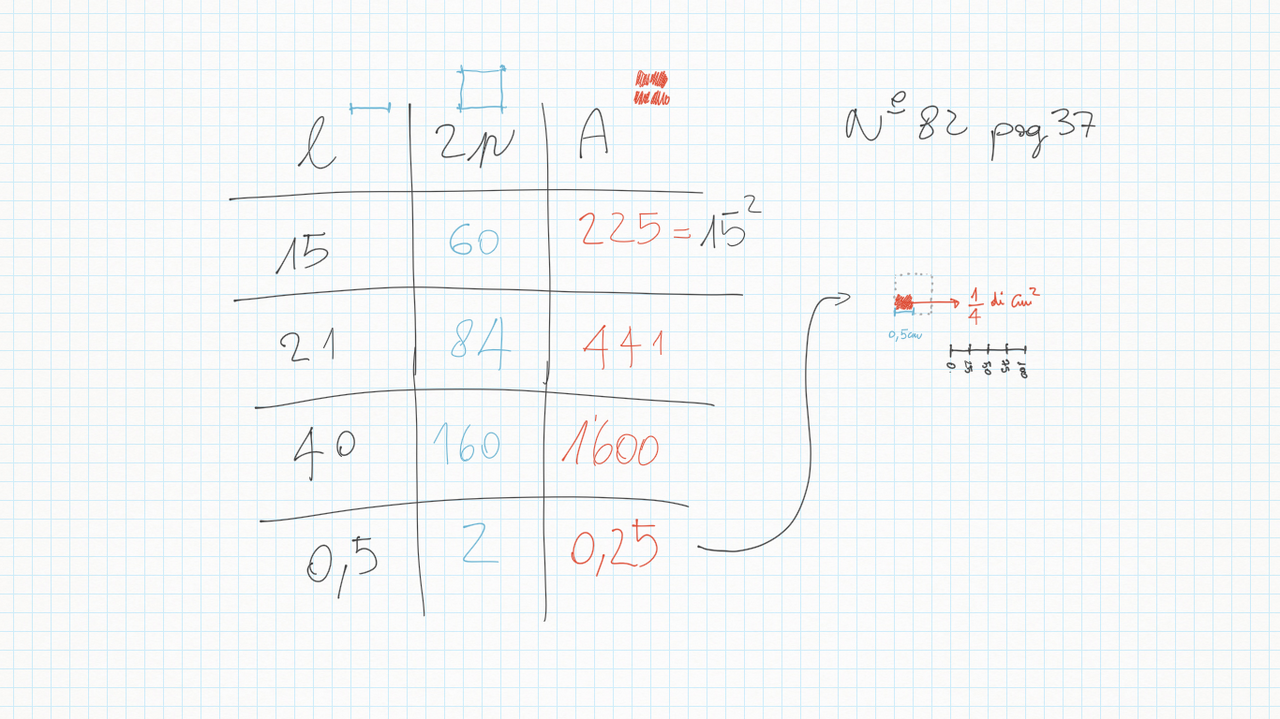 l 2p A
15 60 225 = 15²
21 84 441
40 160 1600
0,5 2 0,25
Nº 82 pag 37
1/4 di cm²
0,5cm
0 25 50 75 100